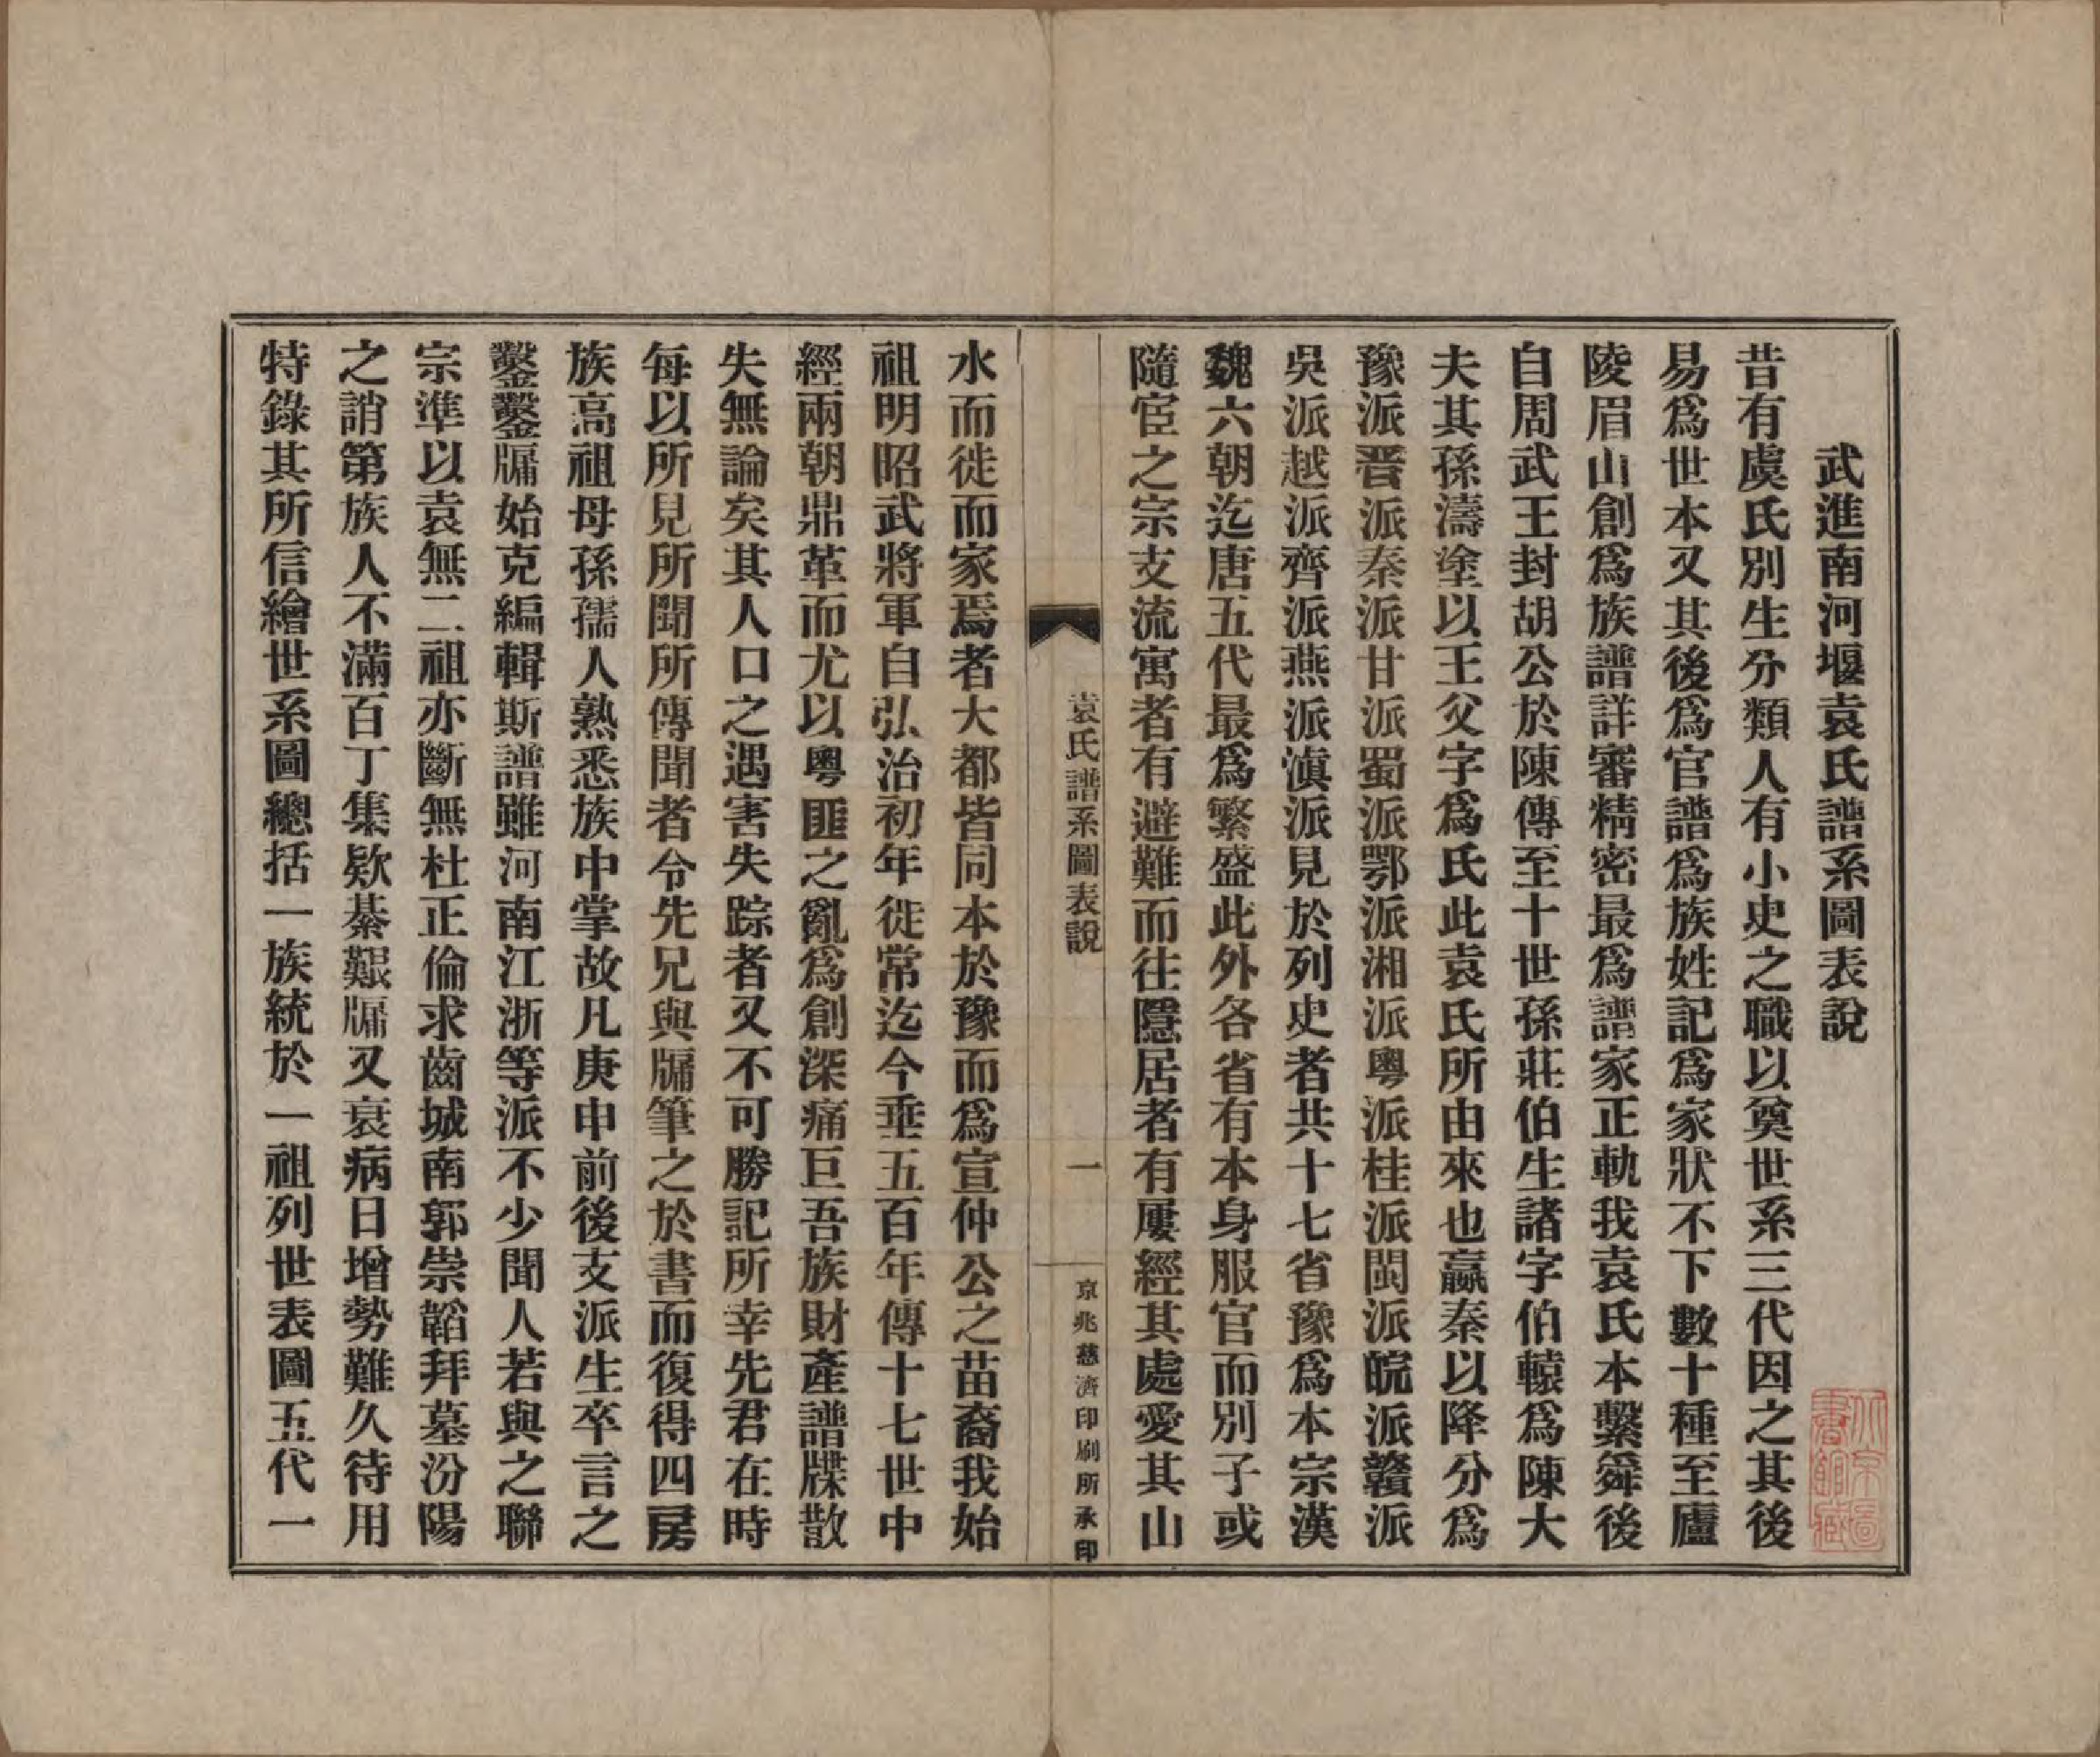 武進南河堰袁氏譜系圖表說
昔有虞氏別生分類人有小史之職以奠世系三代因之其後
易爲世本又其後爲官譜爲族姓記爲家狀不下數十種至廬
陵眉山創爲族譜詳審精密最爲譜家正軌我袁氏本繫舜後
自周武王封胡公於陳傳至十世孫莊伯生諸字伯轅爲陳大
夫其孫濤塗以王父字爲氏此袁氏所由來也嬴秦以降分爲
豫派晋派秦派甘派蜀派鄂派湘派粵派桂派閩派皖派贛派
吳派越派齊派燕派滇派見於列史者共十七省豫爲本宗漢
魏六朝迄唐五代最爲繁盛此外各省有本身服官而別子或
隨宦之宗支流寓者有避難而往隱居者有屢經其處愛其山
袁氏譜系圖表說
一
京兆慈濟印刷所承印
水而徙而家焉者大都皆同本於豫而爲宣仲公之苗裔我始
祖明昭武將軍自弘治初年徙常迄今垂五百年傳十七世中
經兩朝鼎革而尤以粵匪之亂爲創深痛巨吾族財產譜牒散
失無論矣其人口之遇害失踪者又不可勝記所幸先君在時
每以所見所聞所傳聞者令先兄與牗筆之於書而復得四房
族高祖母孫孺人熟悉族中掌故凡庚申前後支派生卒言之
鑿鑿牗始克編輯斯譜雖河南江浙等派不少聞人若與之聯
宗準以袁無二祖亦斷無杜正倫求齒城南郭崇韜拜墓汾陽
之誚第族人不滿百丁集欵綦艱牗又衰病日增勢難久待用
特錄其所信繪世系圖總括一族統於一祖列世表圖五代一